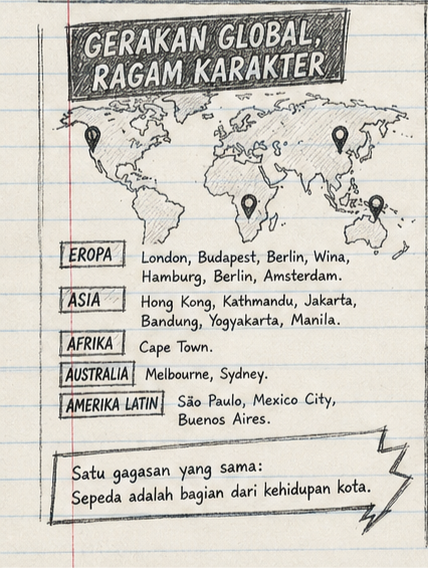 GERAKAN GLOBAL,
RAGAM KARAKTER
EROPA
London, Budapest, Berlin, Wina,
Hamburg, Berlin, Amsterdam.
ASIA
Hong Kong, Kathmandu, Jakarta,
Bandung, Yogyakarta, Manila.
AFRIKA
Cape Town.
AUSTRALIA
Melbourne, Sydney.
AMERIKA LATIN
São Paulo, Mexico City,
Buenos Aires.
Satu gagasan yang sama:
Sepeda adalah bagian dari kehidupan kota.